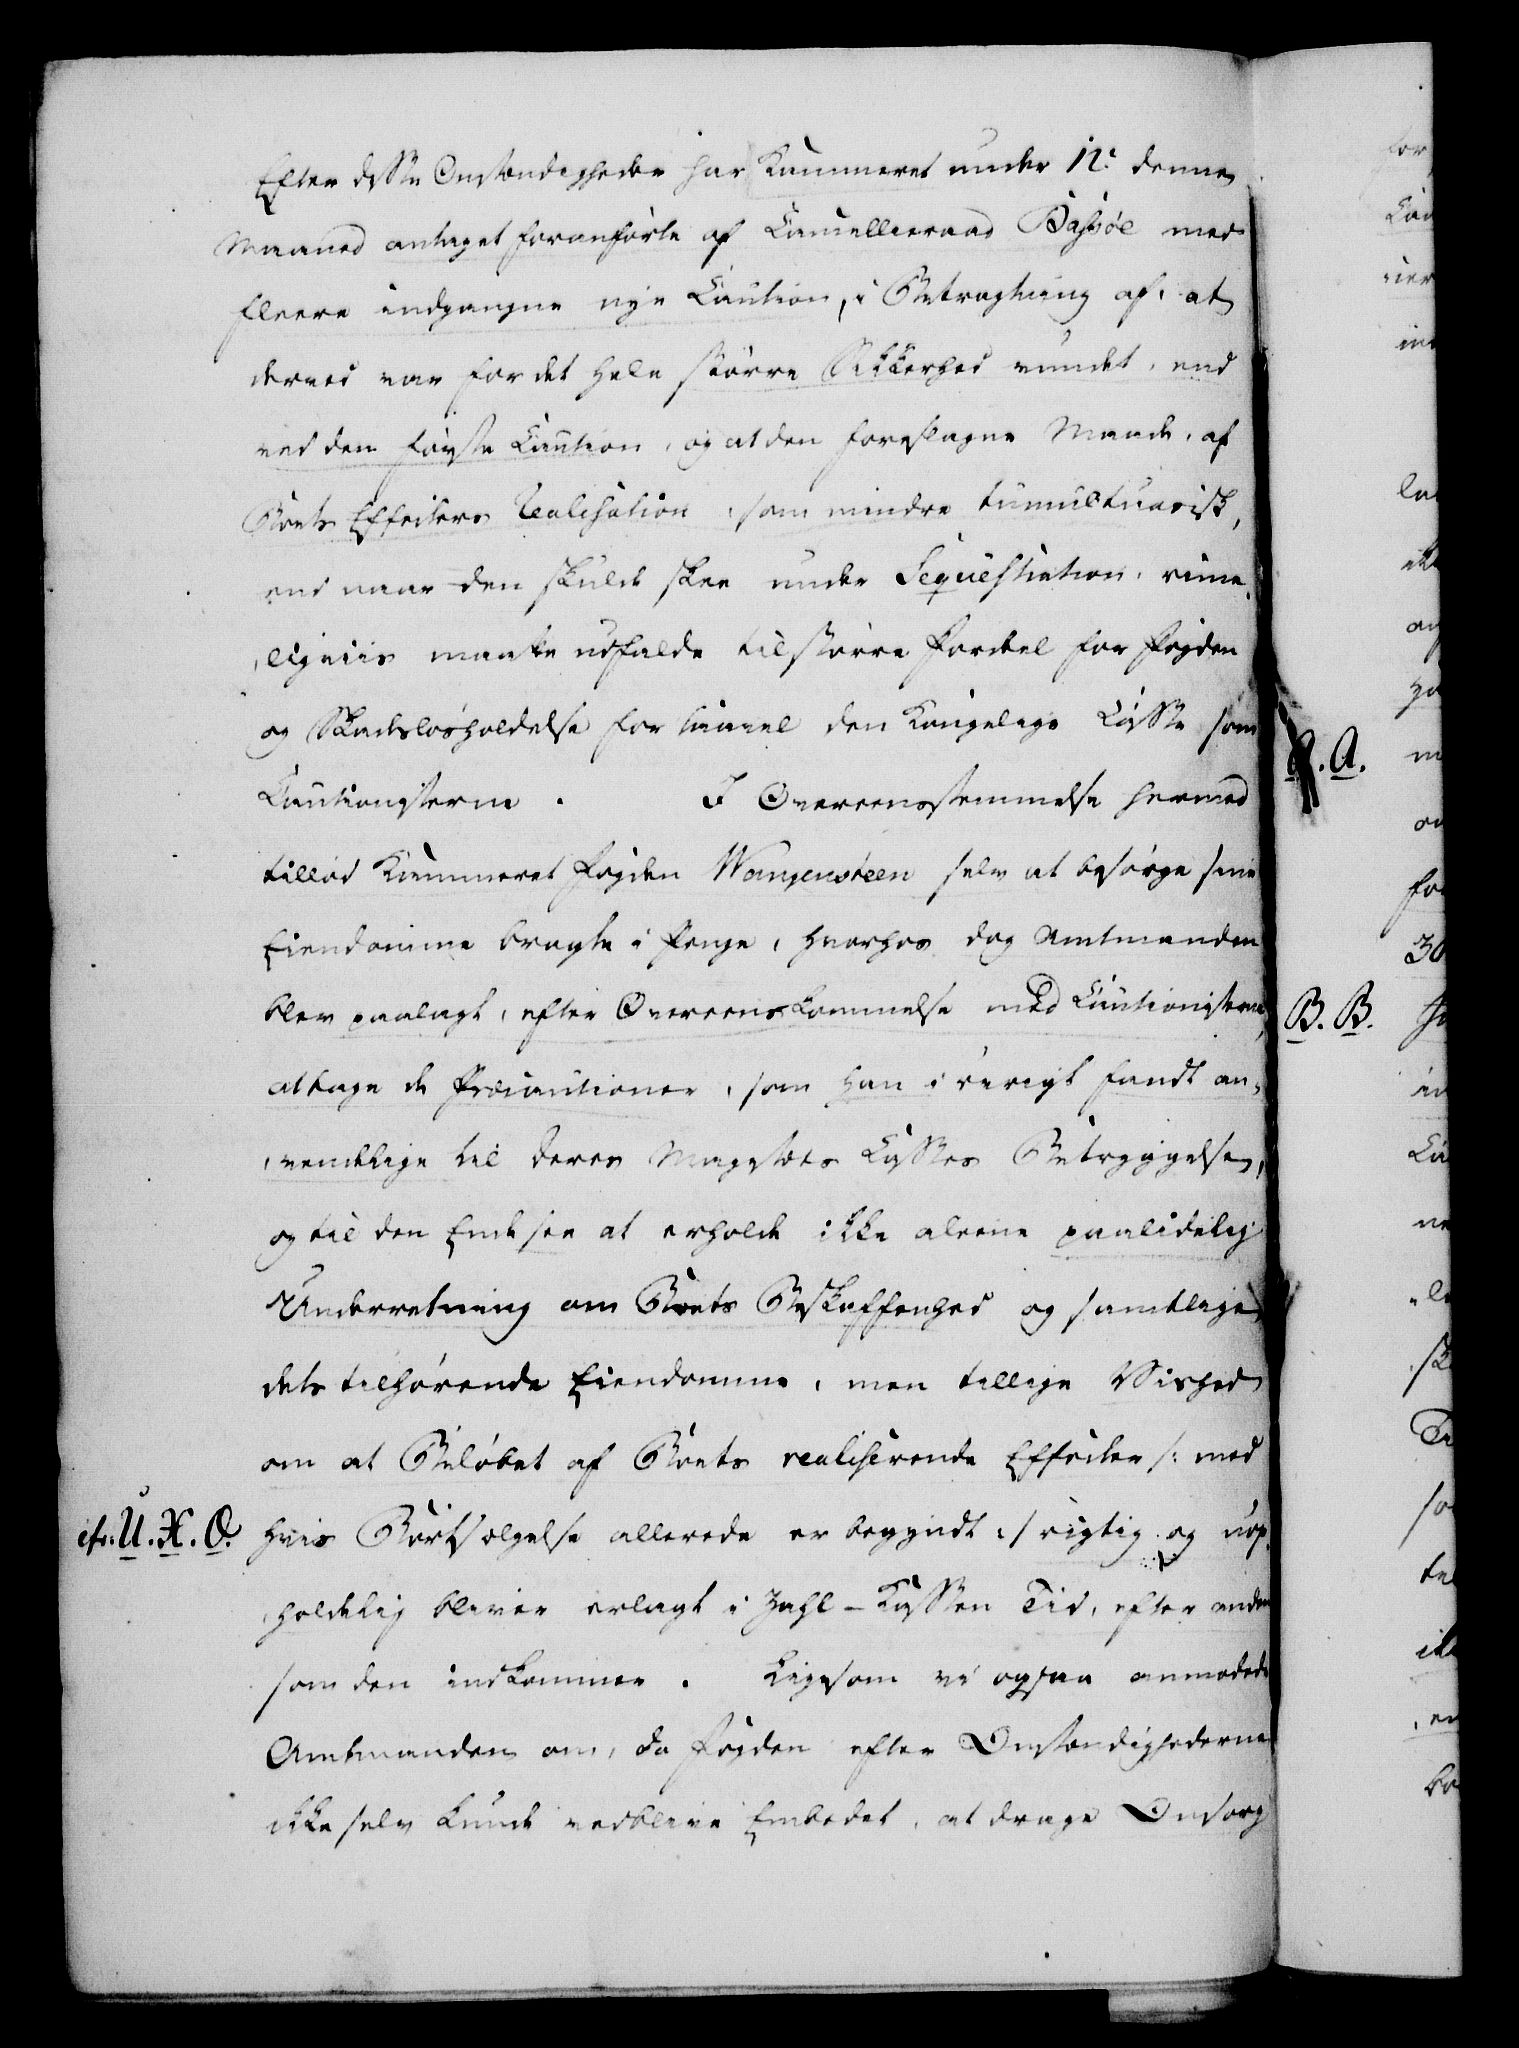 Efter disse Omstændigheder har Kammeret under 12te denne
Maaned antaget foranførte af Cancellieraad Bassøe med
fleere indgangne nye Caution, i Betragtning af, at
derved var for det hele større Sikkerhed vundet, end
ved den første Caution, og at den foreslagne Maade, af
Boets Effecters Realisation, som mindre tumultuarisk,
end naar den skulde skee under Sequestration, rime-
ligviis maatte udfalde til større Fordeel for Fogden
og Skadesløsholdelse for saavel den Kongelige Casse som
Cautionisterne. I Overeensstemmelse hermed
tillod Kammeret Fogden Wangensteen selv at besørge sine
Eiendomme bragte i Penge, hvorhos dog Amtmanden
blev paalagt, efter Overeenskommelse med Cautionisterne,
at tage de Præcautioner, som han i øvrigt fandt an-
vendelige til Deres Majestæts Casses Betryggelse,
og til den Ende see at erholde ikke aleene paalidelig
Underretning om Boets Beskaffenhed og samtlige
dets tilhørende Eiendomme, men tillige Vished
om at Beløbet af Boets realiserende Effecter /: med
cfr. U. X. O. hvis Bortsælgelse allerede er begyndt :/ rigtig og uop-
holdelig bliver erlagt i Zahl-Kassen Tid, efter anden
som den indkommer. Ligesom vi ogsaa anmodede
Amtmanden om, da Fogden efter Omstændighederne
ikke selv kunde vedblive Embedet, at drage Omsorg
A. A.
B. B.